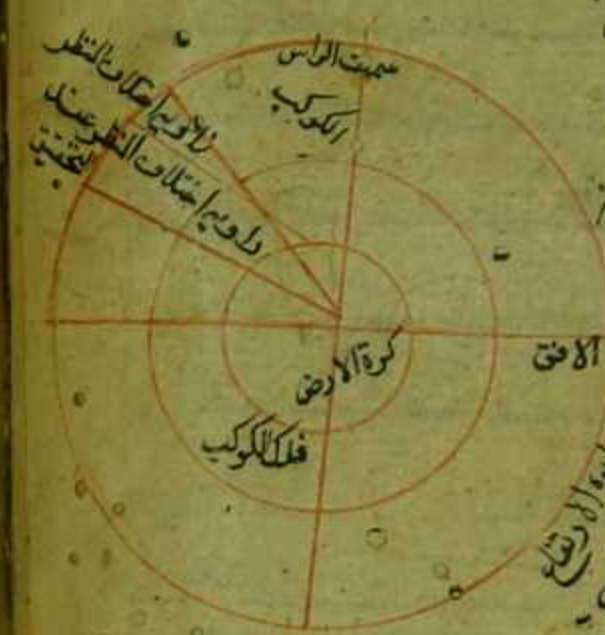 سمت الراس
الكوكب
زاوية اختلاف النظر
زاوية اختلاف النظر عند
التحقيق
الافق
كرة الارض
فلك الكوكب
الارتفاع